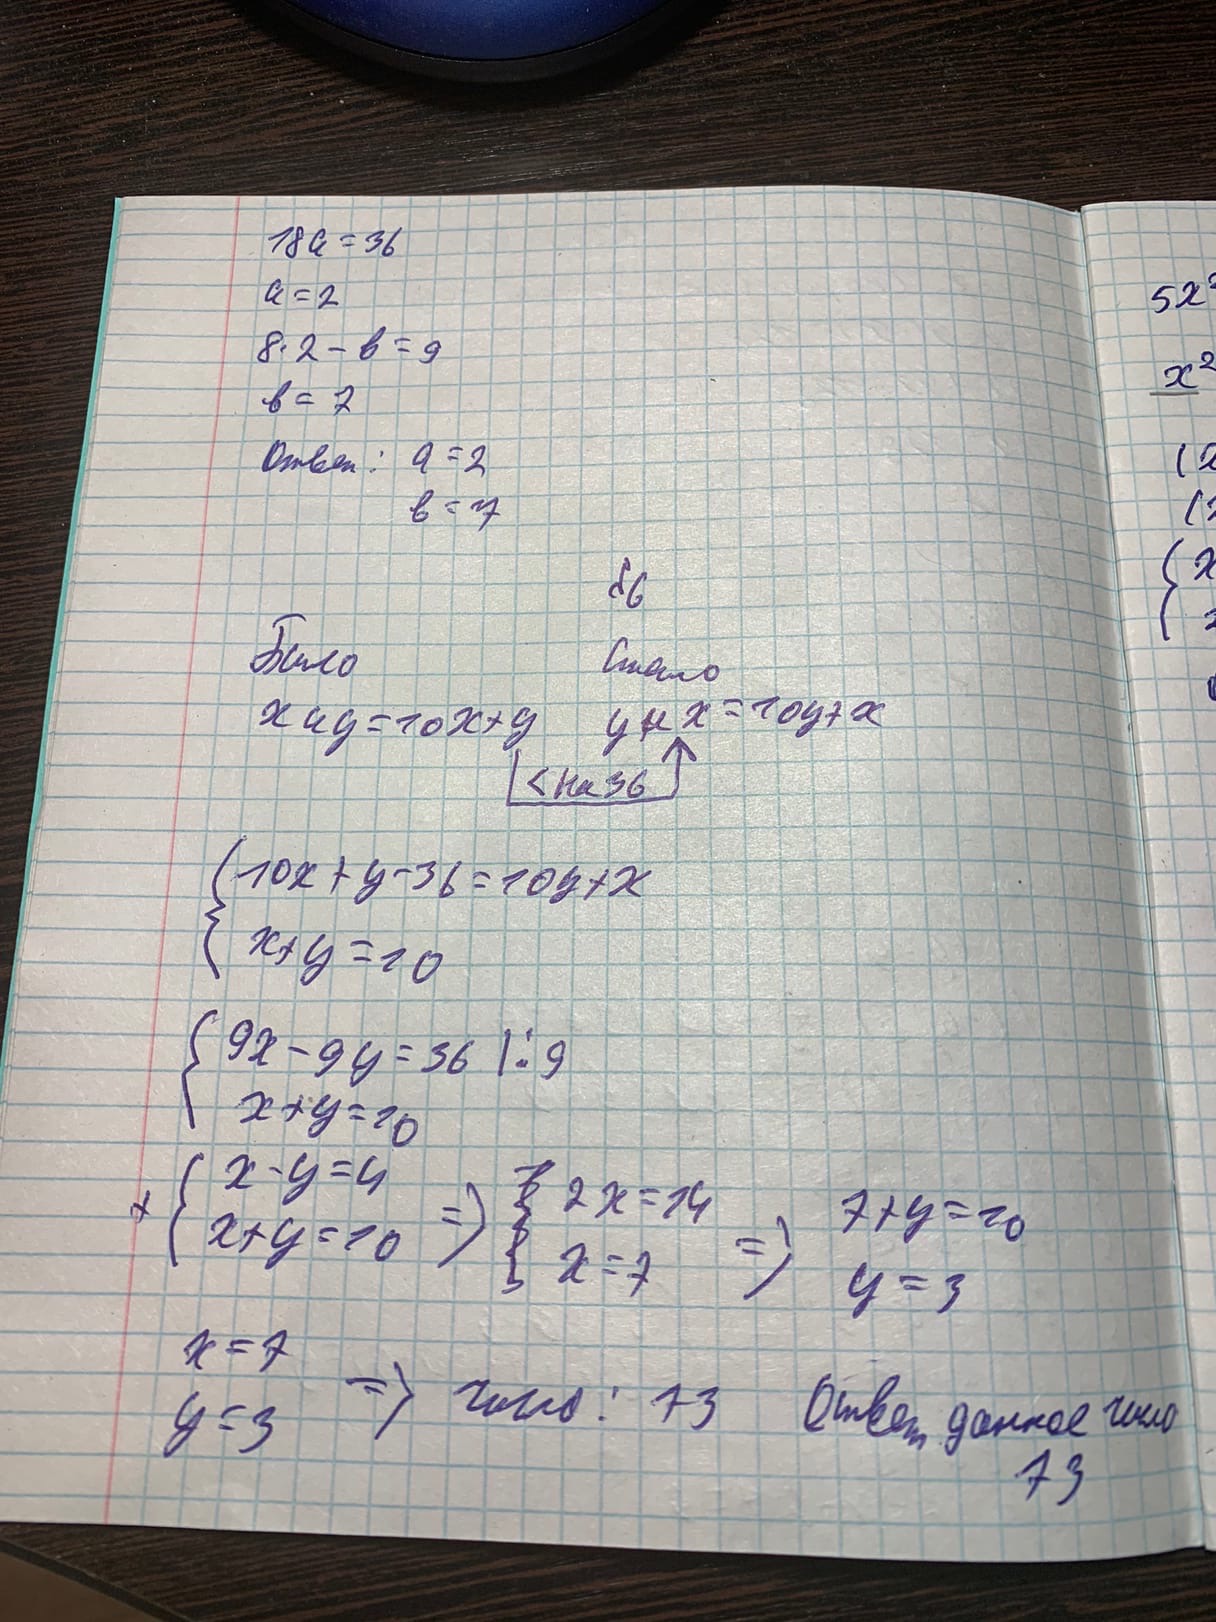 18a = 36
a = 2
8·2 – в = 9
в = 7
Ответ: a = 2
в = 7
Было
Стало
x и y = 10x + y
y и x = 10y + x
< на 36
{ 10x + y – 36 = 10y + x
x + y = 10
{ 9x – 9y = 36 |:9
x + y = 10
+ { x – y = 4
x + y = 10
=> 2x = 14
x = 7
=> 7 + y = 10
y = 3
x = 7
y = 3
=> число: 73
Ответ данное число
73
5x²
x²